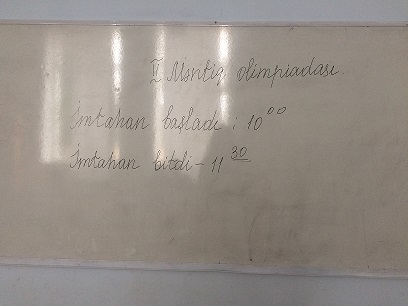 II Məntiq olimpiadası.
İmtahan başladı : 10⁰⁰
İmtahan bitdi - 11³⁰